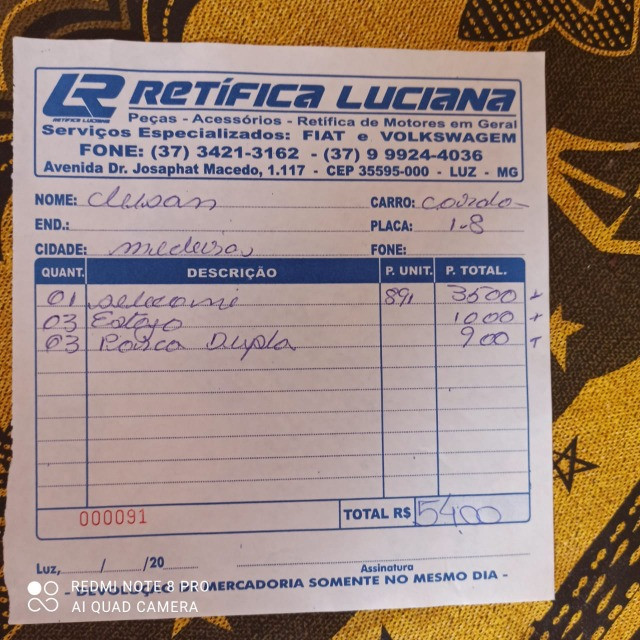 LR RETÍFICA LUCIANA
RETÍFICA LUCIANA
Peças - Acessórios - Retífica de Motores em Geral
Serviços Especializados: FIAT e VOLKSWAGEM
FONE: (37) 3421-3162 - (37) 9 9924-4036
Avenida Dr. Josaphat Macedo, 1.117 - CEP 35595-000 - LUZ - MG
NOME: CARRO:
END.: PLACA: 1-8
CIDADE: medeiros FONE:
QUANT. DESCRIÇÃO P. UNIT. P. TOTAL.
01 891 3500 +
03 Estojo 1000 +
03 Rosca Dupla 900 +
000091 TOTAL R$ 5400
Luz, / /20
Assinatura
- DEVOLUÇÃO DE MERCADORIA SOMENTE NO MESMO DIA -
REDMI NOTE 8 PRO
AI QUAD CAMERA